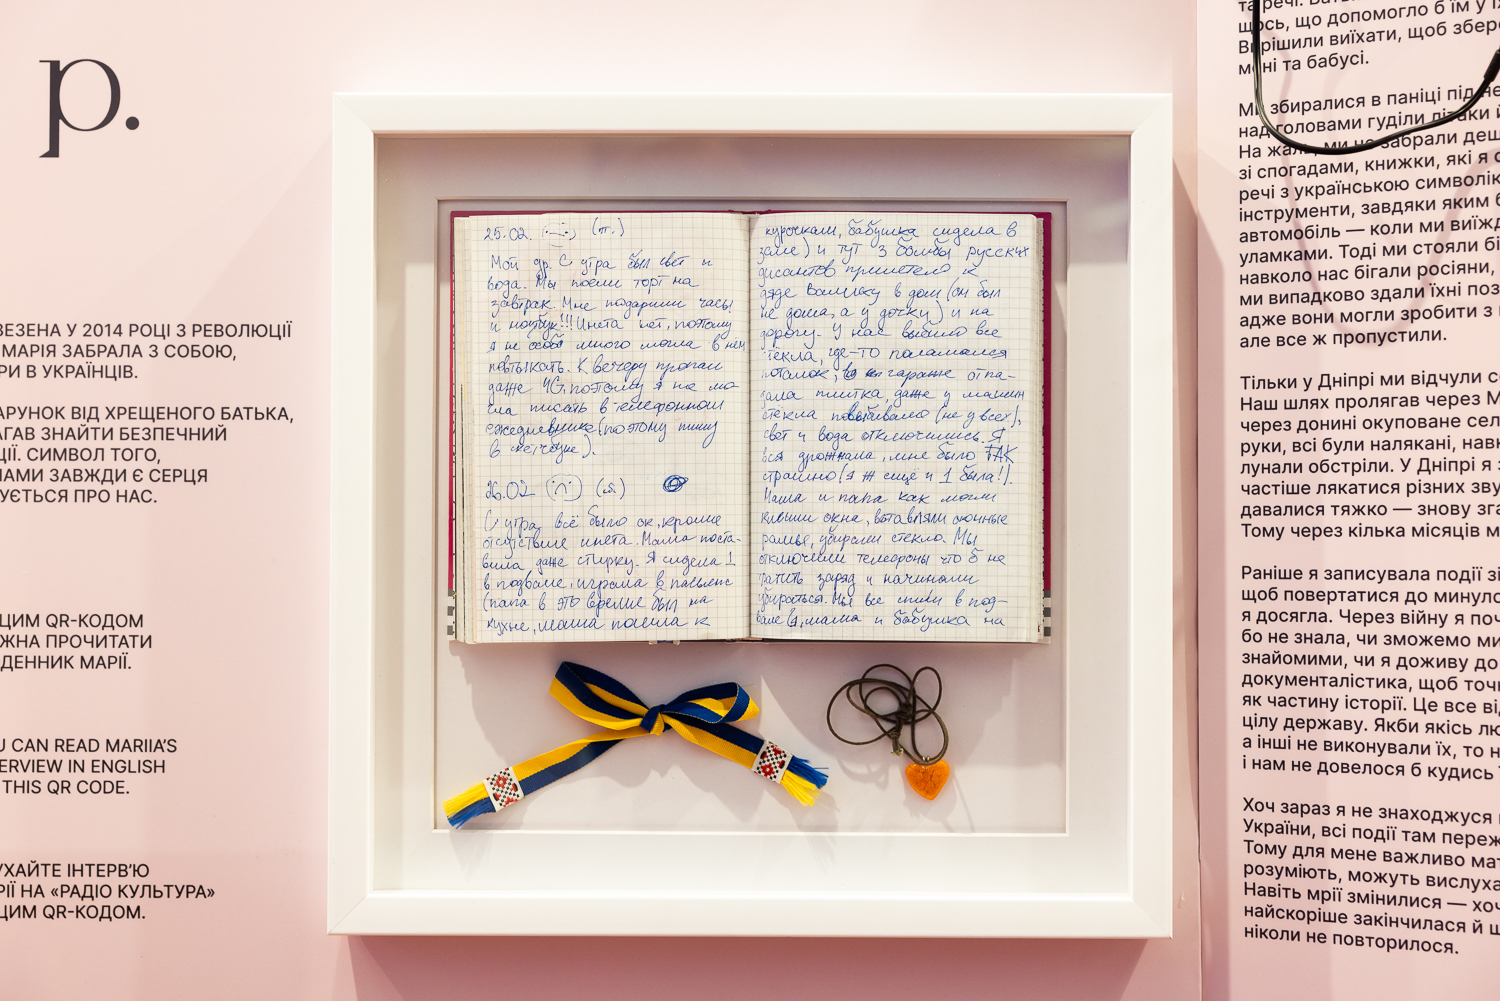 р.
ВЕЗЕНА У 2014 РОЦІ З РЕВОЛЮЦІЇ
МАРІЯ ЗАБРАЛА З СОБОЮ,
РИ В УКРАЇНЦІВ.
АРУНОК ВІД ХРЕЩЕНОГО БАТЬКА,
АГАВ ЗНАЙТИ БЕЗПЕЧНИЙ
ЦІЇ. СИМВОЛ ТОГО,
НАМИ ЗАВЖДИ Є СЕРЦЯ
УЄТЬСЯ ПРО НАС.
ЦИМ QR-КОДОМ
ЖНА ПРОЧИТАТИ
ДЕННИК МАРІЇ.
U CAN READ MARIIA'S
ERVIEW IN ENGLISH
THIS QR CODE.
УХАЙТЕ ІНТЕРВ'Ю
РІЇ НА «РАДІО КУЛЬТУРА»
ЦИМ QR-КОДОМ.
25.02. (п.)
Мой др. С утра был свет и
вода. Мы поели торт на
завтрак. Мне подарили часы
и ноутбук!!! Инета нет, поэтому
я не особо много могла в нём
повтыкать. К вечеру пропал
даже 4G, поэтому я не мо-
гла писать в телефонном
ежедневнике (поэтому пишу
в нетбуке).
26.02 (с.)
С утра всё было ок, кроме
отсутствие инета. Мама поста-
вила даже стирку. Я сидела 1
в подвале, играла в пасьянс
(папа в это время был на
кухне, мама пошла к
курочкам, бабушка сидела в
зале) и тут 3 бомбы русских
дисантов прилетело к
дяде Валику в дом (он был
не дома, а у дочки) и на
дорогу. У нас выбило все
стёкла, где-то поламался
потолок, в гараже отпа-
дала плитка, даже у машин
стекла повыбивало (не у всех),
свет и вода отключились. Я
вся дрожала, мне было ТАК
страшно (я ж ещё и 1 была!).
Мама и папа как могли
окна, вставляли оконные
рамы, убирали стекло. Мы
отключили телефоны что б не
тратить заряд и начинали
убираться. Мы все спали в под-
вале (я, мама и бабушка на
та речі.
щось, що допомогло б їм у
Вирішили виїхати, щоб збере
мені та бабусі.
Ми збиралися в паніці під не
над головами гуділи літаки й
На жаль, ми не забрали дещ
зі спогадами, книжки, які я
речі з українською символік
інструменти, завдяки яким б
автомобіль — коли ми виїжд
уламками. Тоді ми стояли бі
навколо нас бігали росіяни,
ми випадково здали їхні поз
адже вони могли зробити з
але все ж пропустили.
Тільки у Дніпрі ми відчули с
Наш шлях пролягав через М
через донині окуповане сел
руки, всі були налякані, навк
лунали обстріли. У Дніпрі я з
частіше лякатися різних зву
давалися тяжко — знову зга
Тому через кілька місяців м
Раніше я записувала події зі
щоб повертатися до минуло
я досягла. Через війну я поч
бо не знала, чи зможемо ми
знайомими, чи я доживу до
документалістика, щоб точн
як частину історії. Це все ві
цілу державу. Якби якісь лю
а інші не виконували їх, то н
і нам не довелося б кудись
Хоч зараз я не знаходжуся
України, всі події там переж
Тому для мене важливо мат
розуміють, можуть вислуха
Навіть мрії змінилися — хоч
найскоріше закінчилася й щ
ніколи не повторилося.